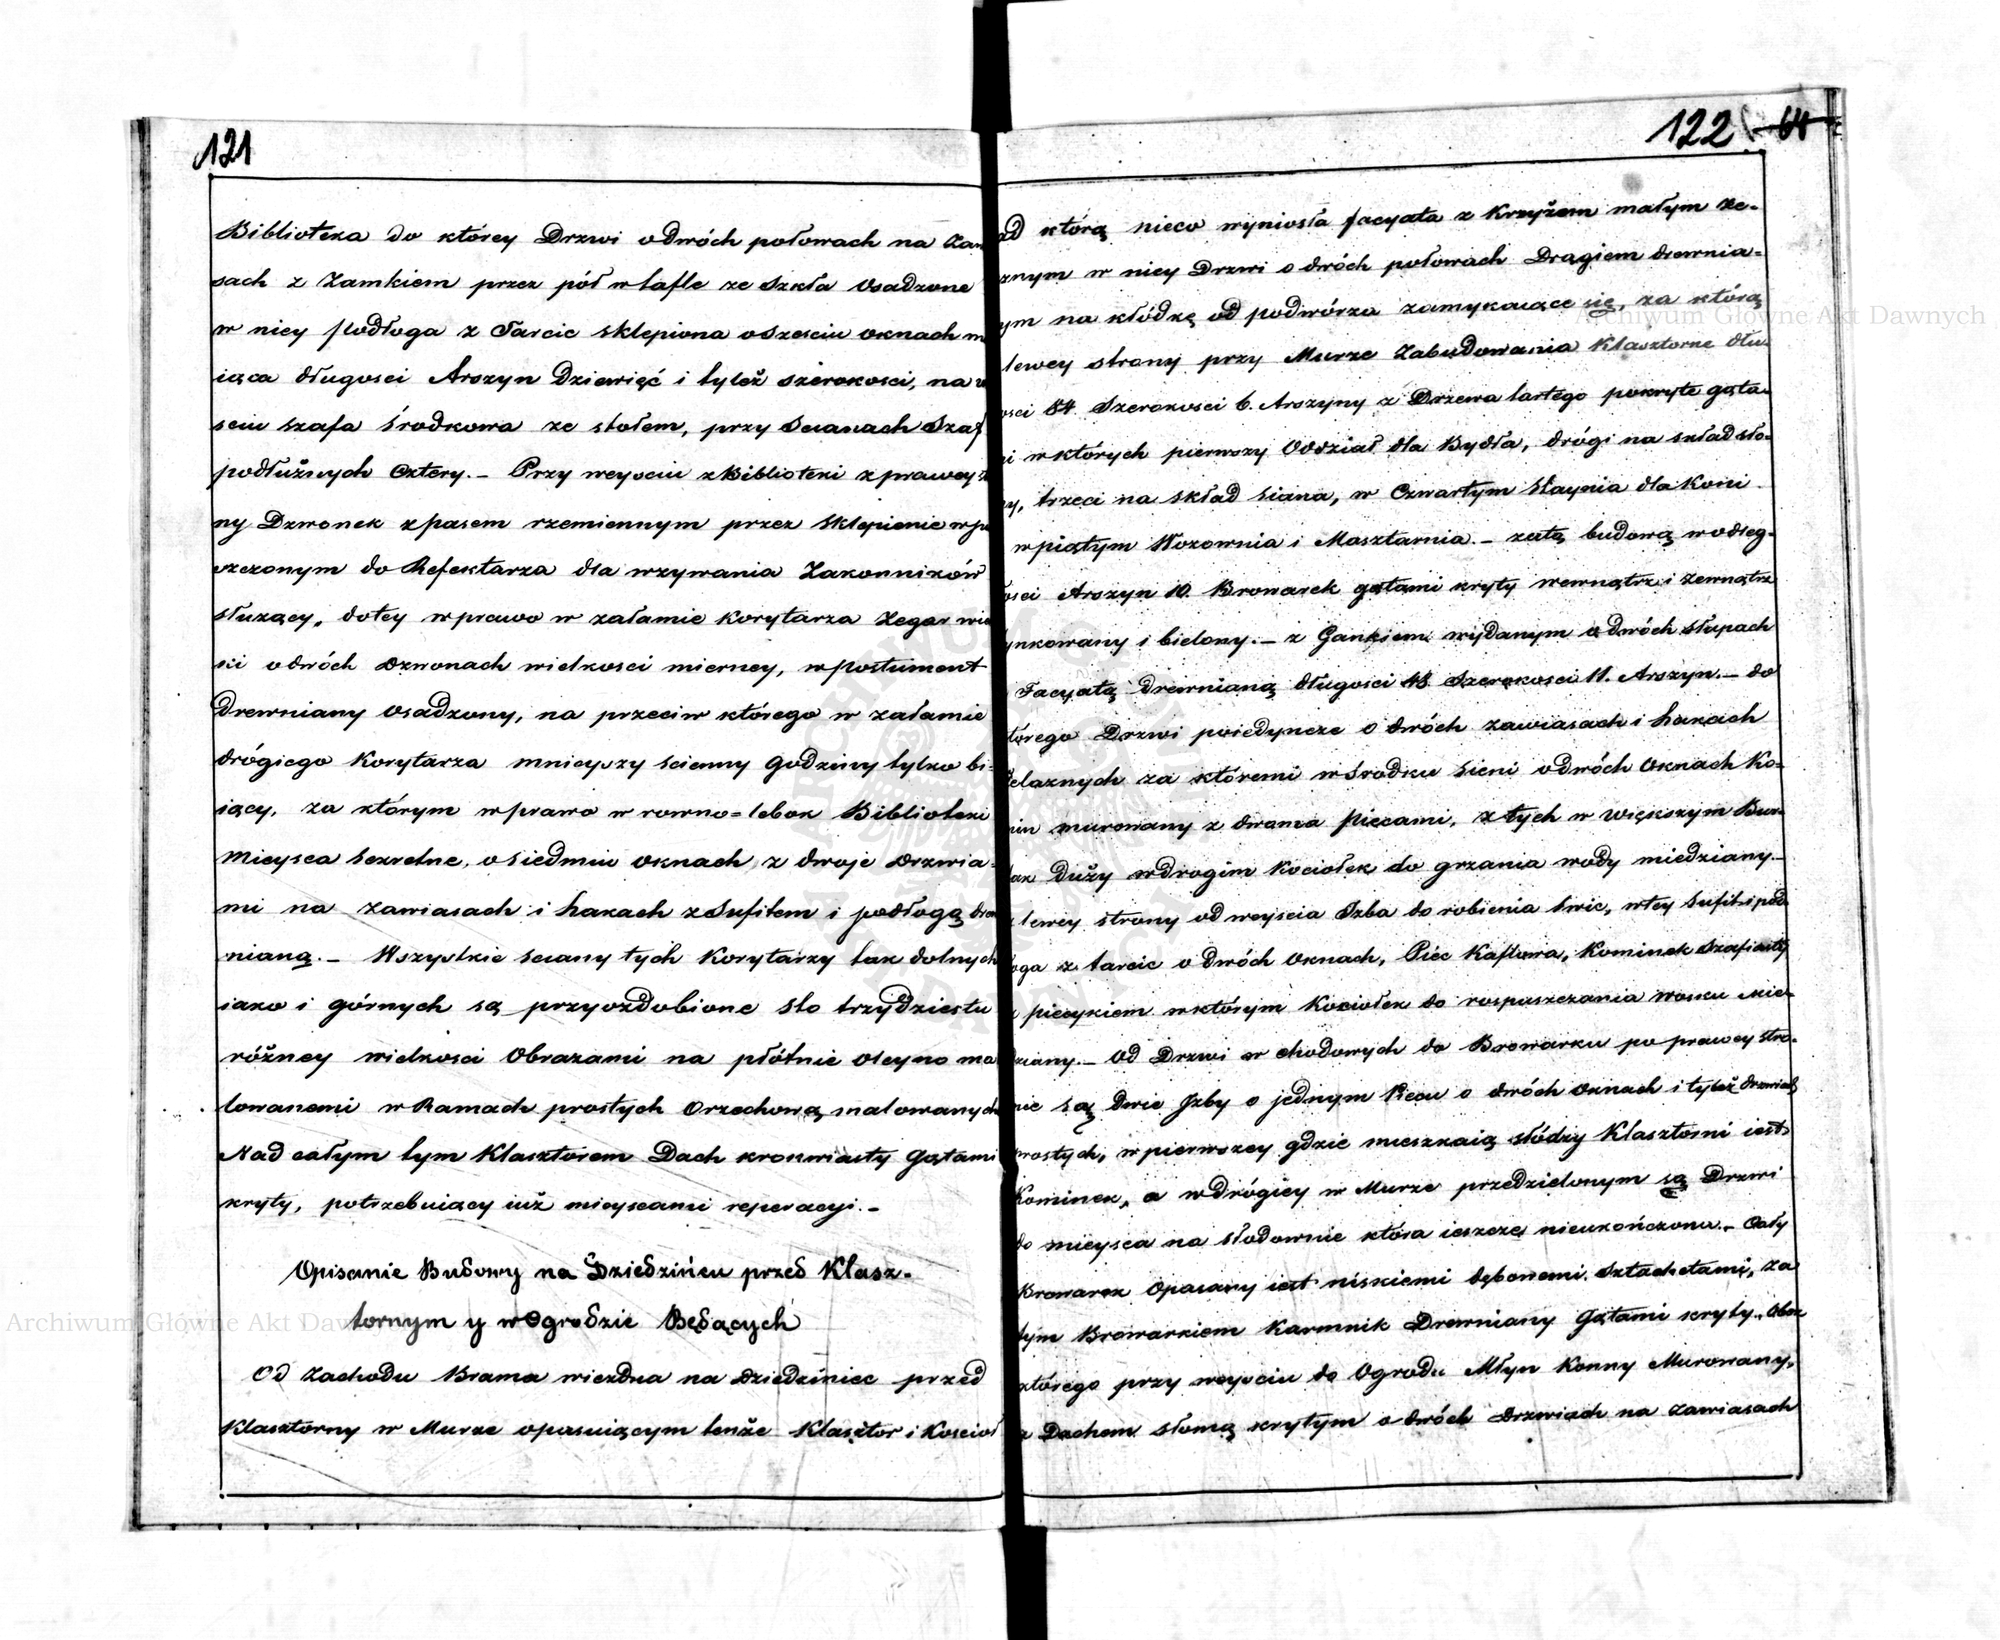 121
Biblioteka do którey Drzwi o dwóch połowach na Zaw
sach z Zamkiem przez pół w tafle ze Szkła Osadzone
w niey podłoga z Tarcic sklepiona o sześciu oknach m
iąca długosci Arszyn Dziewięć i tyleż szerokosci, na w
sciu szafa środkowa ze stołem, przy Scianach Szaf
podłużnych cztery. – Przy weysciu z Biblioteki z prawey
ny Dzwonek z pasem rzemiennym przez Sklepienie wpu
szczonym do Refektarza dla wzywania Zakonników
służący, dotey w prawo w załamie Korytarza Zegar wie
ki o dwóch dzwonach wielkosci mierney, w postument
Drewniany Osadzony, na przeciw którego w załamie
drógiego Korytarza mnieyszy scienny godziny tylko bi-
iący, za którym w prawo w rowno=lebok Biblioteki
Mieysca sekretne o siedmiu oknach z dwoje Drzwia-
mi na zawiasach i hakach z Sufitem i podłogą drew
nianą. – Wszystkie sciany tych Korytarzy tak dolnych
iako i górnych są przyozdobione sto trzydziestu
różney wielkosci Obrazami na płótnie oleyno ma
lowanemi w Ramach prostych Orzechową malowanych
Nad całym tym Klasztorem Dach krokwiasty Gątami
kryty, potrzebuiący iuż mieyscami reperacyi. –
Opisanie Budowy na Dziedzińcu przed Klasz-
tornym y w Ogrodzie Będących
Od Zachodu Brama wiezdna na dziedziniec przed
Klasztorny w Murze opasuiącym tenże Klasztor i Kościoł
122 64
ad którą nieco wyniosła facyata z Krzyżem małym że-
znym w niey Drzwi o dwóch połowach Drągiem drewnia-
ym na kłódkę od podwórza zamykaiące się, za którą
lewey strony przy Murze Zabudowania Klasztorne dłu-
osci 84 Szerokosci 6. Arszyny z Drzewa tartego pokryte gąta-
i w których pierwszy Oddział dla Bydła, drógi na skład sło-
y, trzeci na skład siana, w Czwartym Staynia dla Koni
w piątym Wozownia i Masztarnia. – za tą budową w odleg-
osci Arszyn 10. Browarek gątami kryty wewnątrz i zewnątrz
ynkowany i bielony. – z Gankiem wydanym o dwóch słupach
Facyatą Drewnianą długosci 18 Szerokosci 11. Arszyn. – do
tórego Drzwi poiedyncze o dwóch zawiasach i hakach
elaznych za któremi w środku sieni o dwóch Oknach Ko-
in murowany z dwoma piecami, z tych w większym Bur-
ak Duży w drugim Kociołek do grzania wody miedziany. –
lewey strony od weyscia Izba do robienia swic, w tey Sufit i pod-
oga z tarcic o dwóch oknach, Piec Kaflowa, Kominek Szafiasty
piecykiem w którym Kociołek do rospuszczania wosku mie-
dziany. – Od Drzwi w chodowych do Browarku po prawey stro-
nie są Dwie Izby o jednym Piecu o dwóch oknach i tyleż drzwiach
prostych, w pierwszey gdzie mieszkaią słódzy Klasztorni iest
Kominek, a w drógiey w Murze przedzielonym są Drzwi
do mieysca na słodownie która ieszcze nieukończona. – Cały
Browarek Opasany iest niskiemi dębowemi Sztachetami, za
tym Browarkiem Karmnik Drewniany Gątami kryty. Obok
którego przy weysciu do Ogrodu Młyn Konny Murowany,
z Dachem słomą krytym o dwóch Drzwiach na zawiasach
Archiwum Główne Akt Dawnych
Archiwum Główne Akt Dawnych